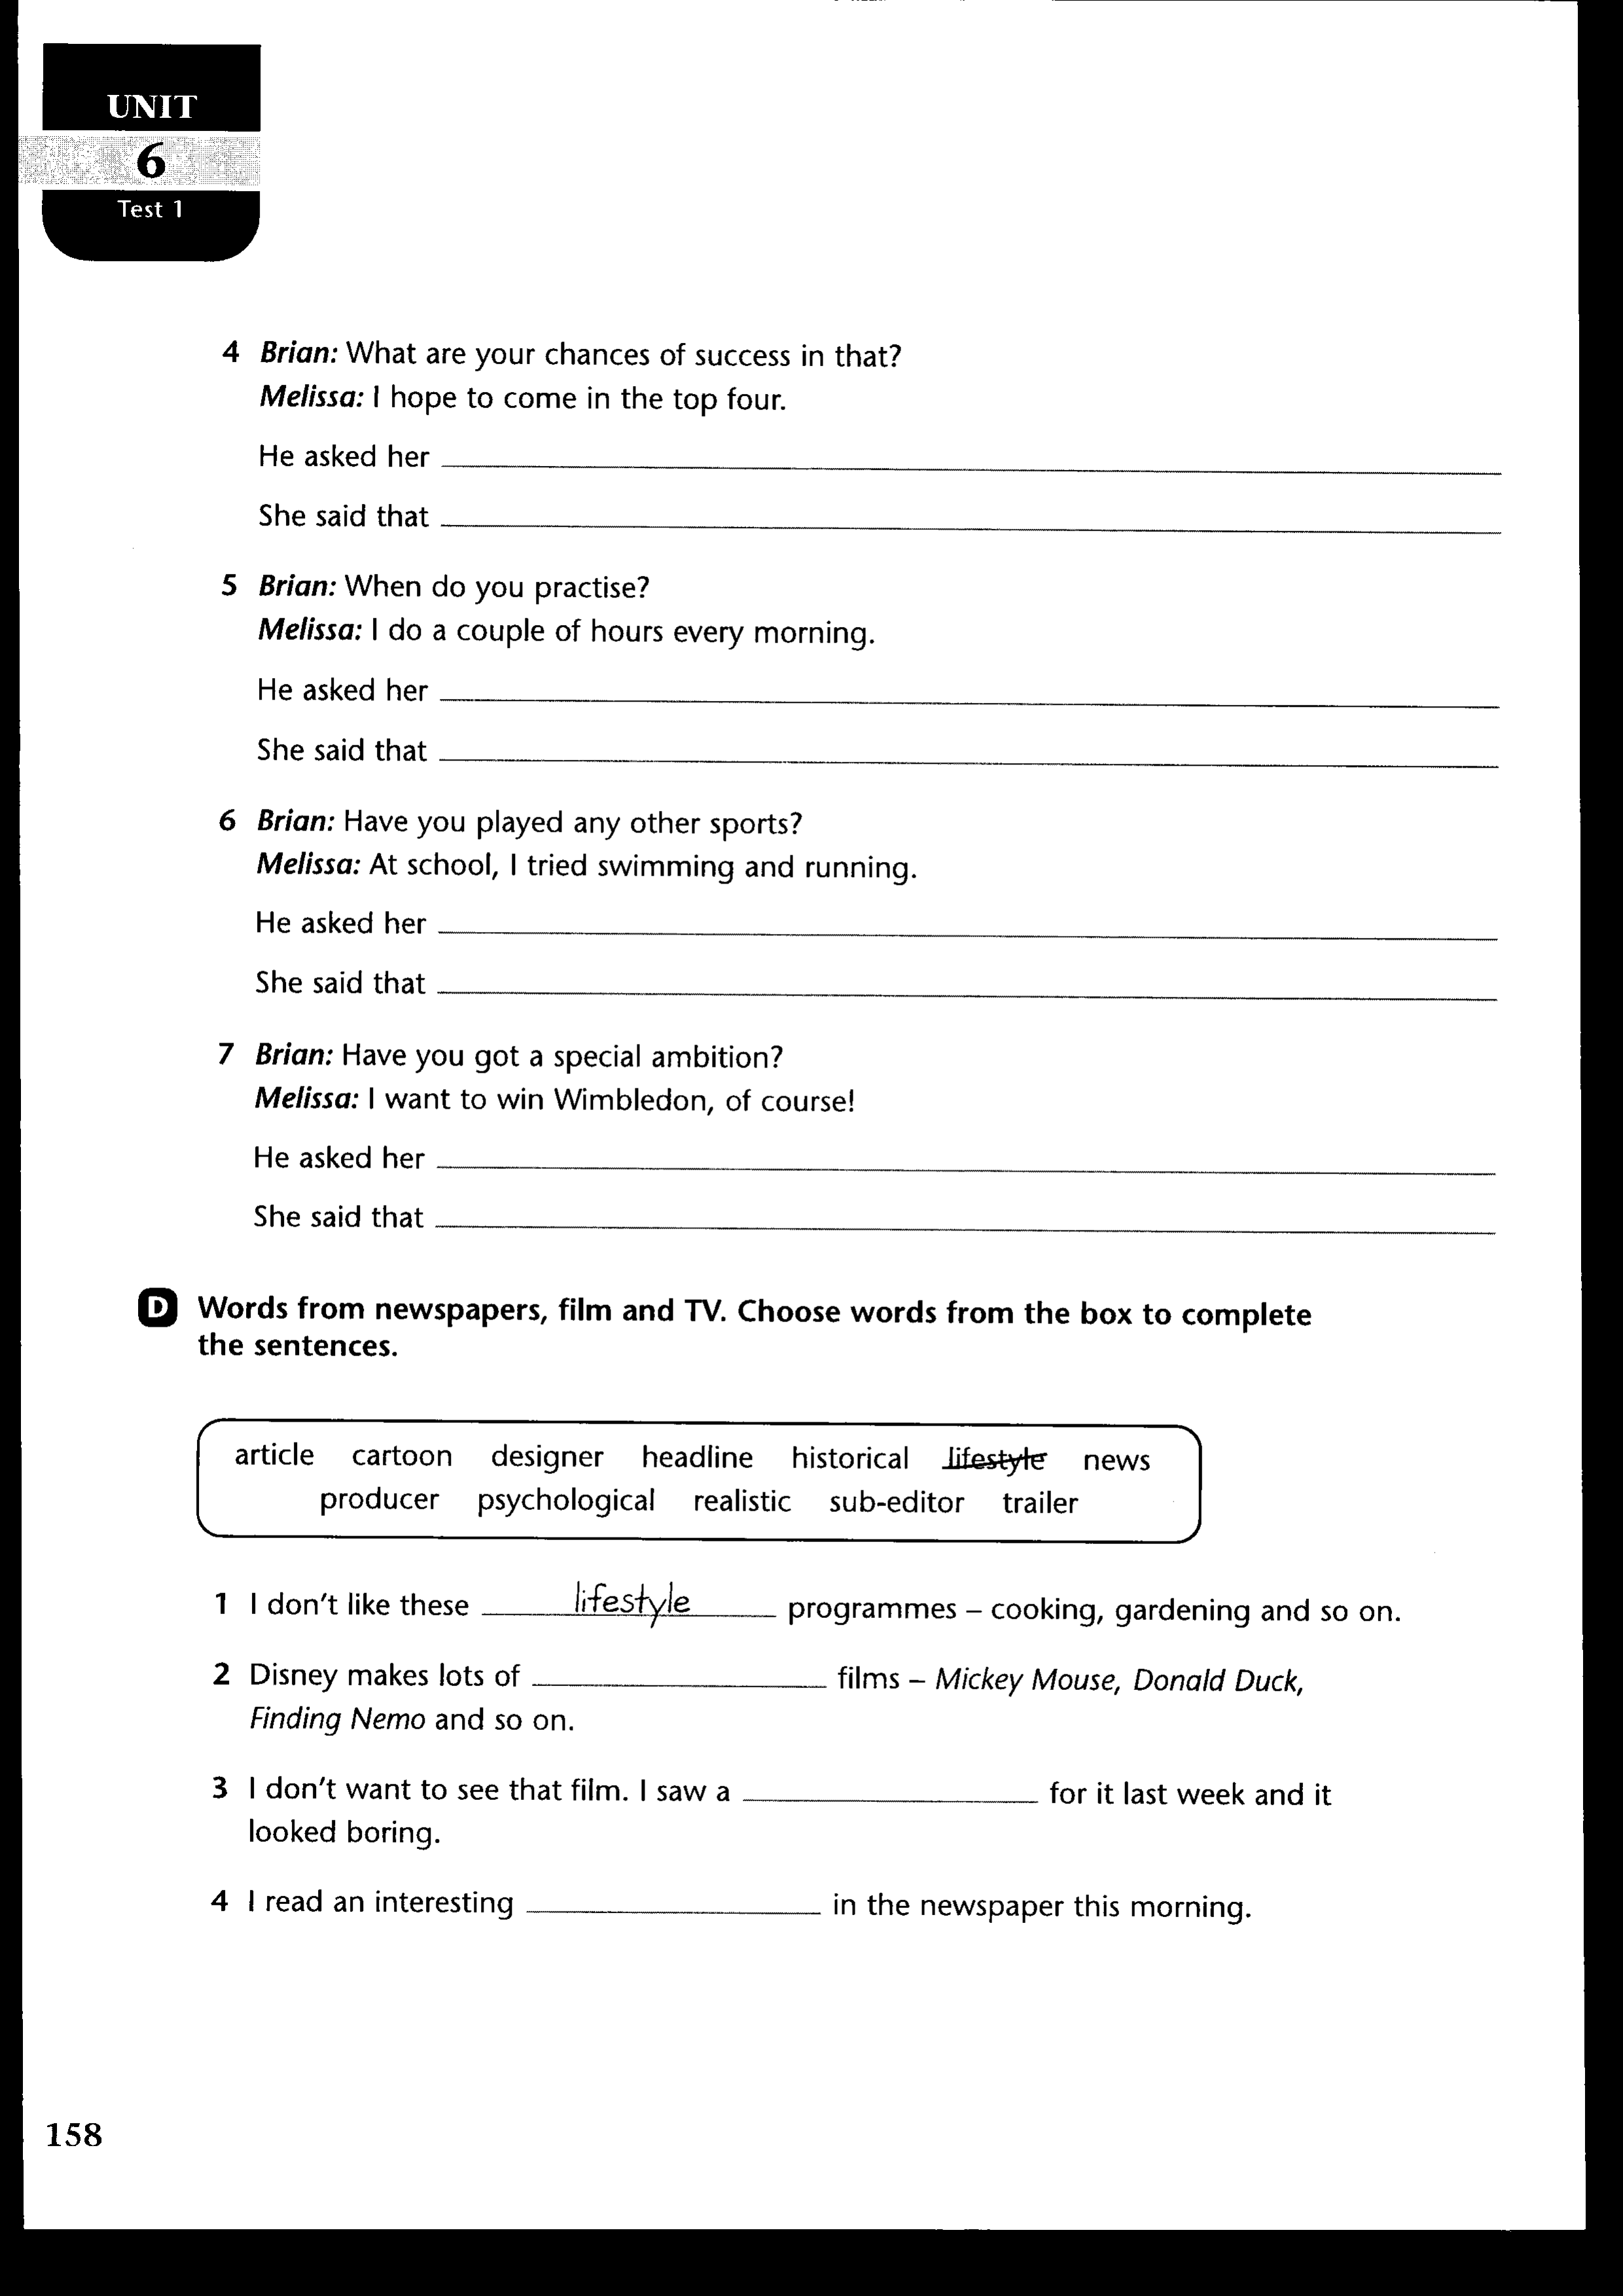 UNIT
6
Test 1
4 Brian: What are your chances of success in that?
Melissa: I hope to come in the top four.
He asked her
She said that
5 Brian: When do you practise?
Melissa: I do a couple of hours every morning.
He asked her
She said that
6 Brian: Have you played any other sports?
Melissa: At school, I tried swimming and running.
He asked her
She said that
7 Brian: Have you got a special ambition?
Melissa: I want to win Wimbledon, of course!
He asked her
She said that
D Words from newspapers, film and TV. Choose words from the box to complete
the sentences.
article cartoon designer headline historical lifestyle news
producer psychological realistic sub-editor trailer
1 I don't like these lifestyle programmes – cooking, gardening and so on.
2 Disney makes lots of films – Mickey Mouse, Donald Duck,
Finding Nemo and so on.
3 I don't want to see that film. I saw a for it last week and it
looked boring.
4 I read an interesting in the newspaper this morning.
158